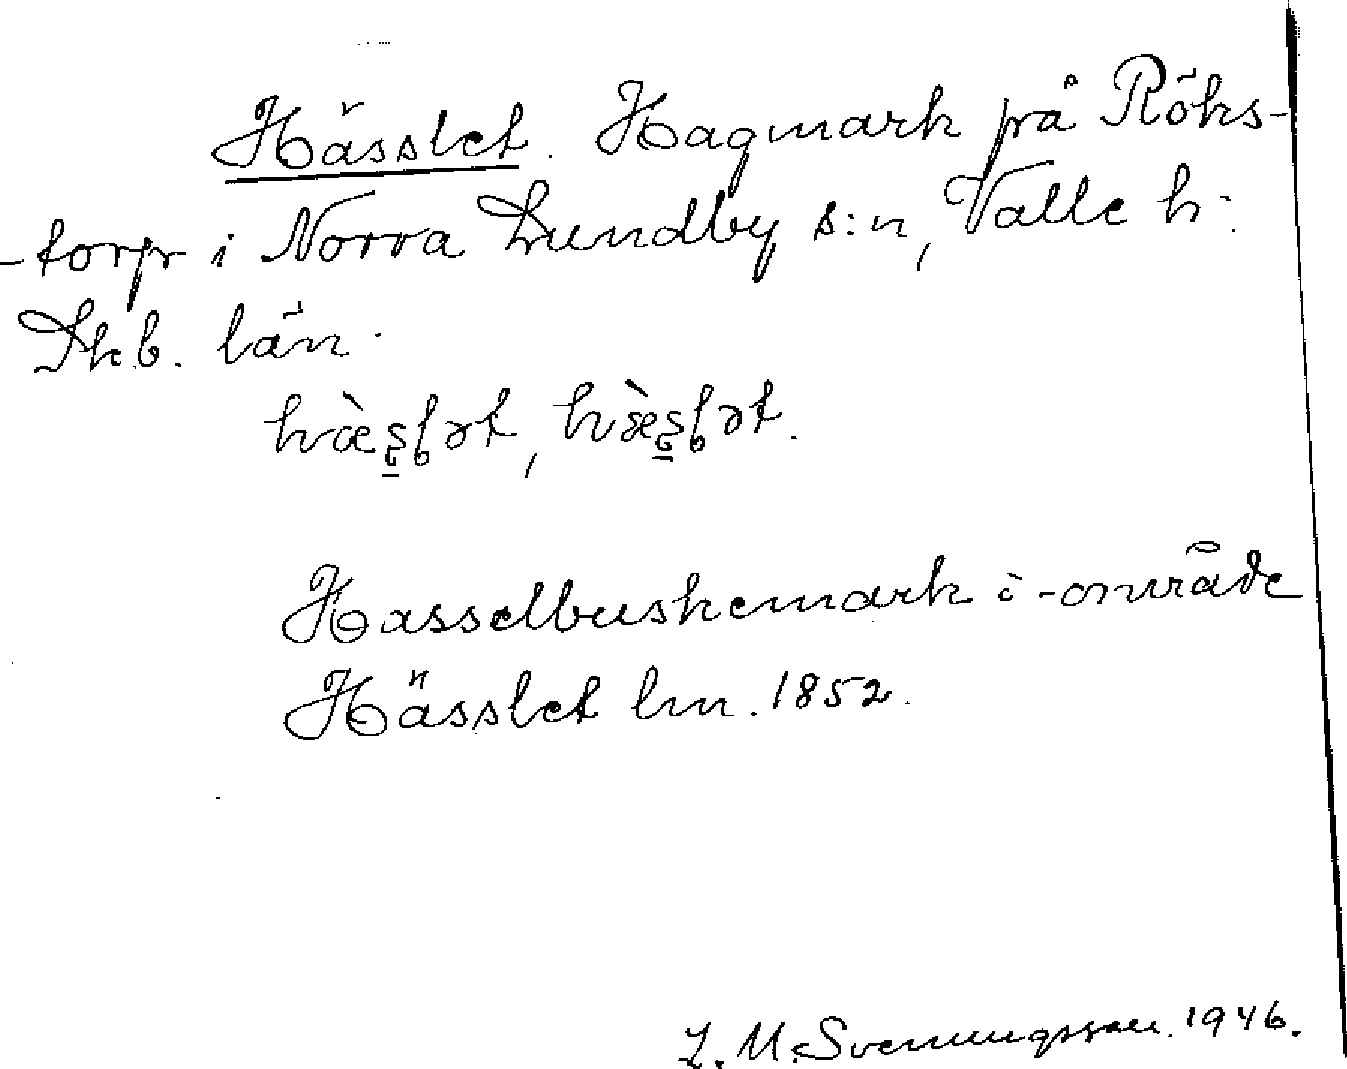 Hässlet. Hagmark på Röks-
-torp i Norra Lundby s:n, Valle h.
Skb. län.
hàs̲ḷət, hæ̀s̲ḷət.
Hasselbuskemark o. -område
Hässlet lm. 1852.
L. M. Svenungsson. 1946.